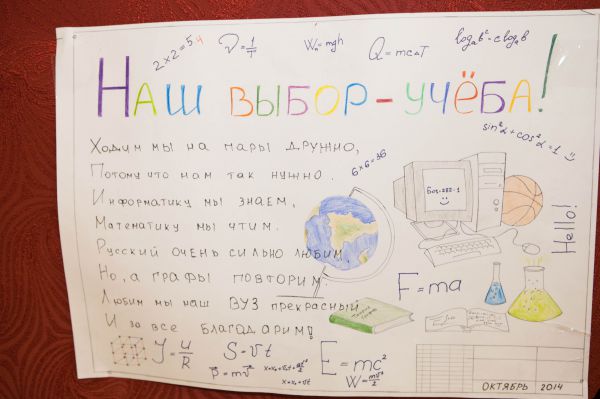 2×2=5 4
ν=1/T
Wп=mgh
Q=mcΔT
logₐb^c=clogₐb
НАШ ВЫБОР-УЧЁБА!
sin²α+cos²α=1
Ходим мы на пары дружно,
Потому что нам так нужно.
6×6=36
Информатику мы знаем,
Математику мы чтим.
Русский очень сильно любим,
Но, а графы повторим.
Любим мы наш ВУЗ прекрасный
И за все благодарим!
Hello!
F=ma
J=U/R
S=vt
p=mv
x=x₀+v₀t+at²/2
x=x₀+vt
E=mc²
W=mv²/2
ОКТЯБРЬ 2014